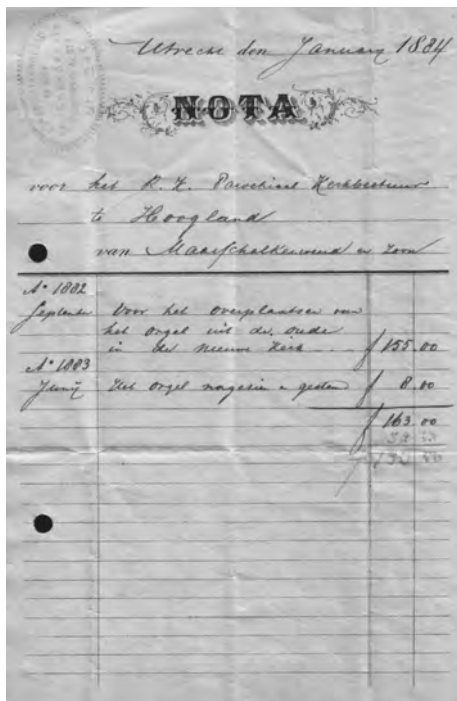 Utrecht den January 1884
NOTA
voor het R. K. Parochiaal Kerkbestuur
te Hoogland
van Maarschalkerweerd en Zoon
Aº 1882
September Voor het overplaatsen van
het orgel uit de oude
in de nieuwe Kerk f 155.00
Aº 1883
Junij Het orgel nagezien & gestemd f 8.00
f 163.00